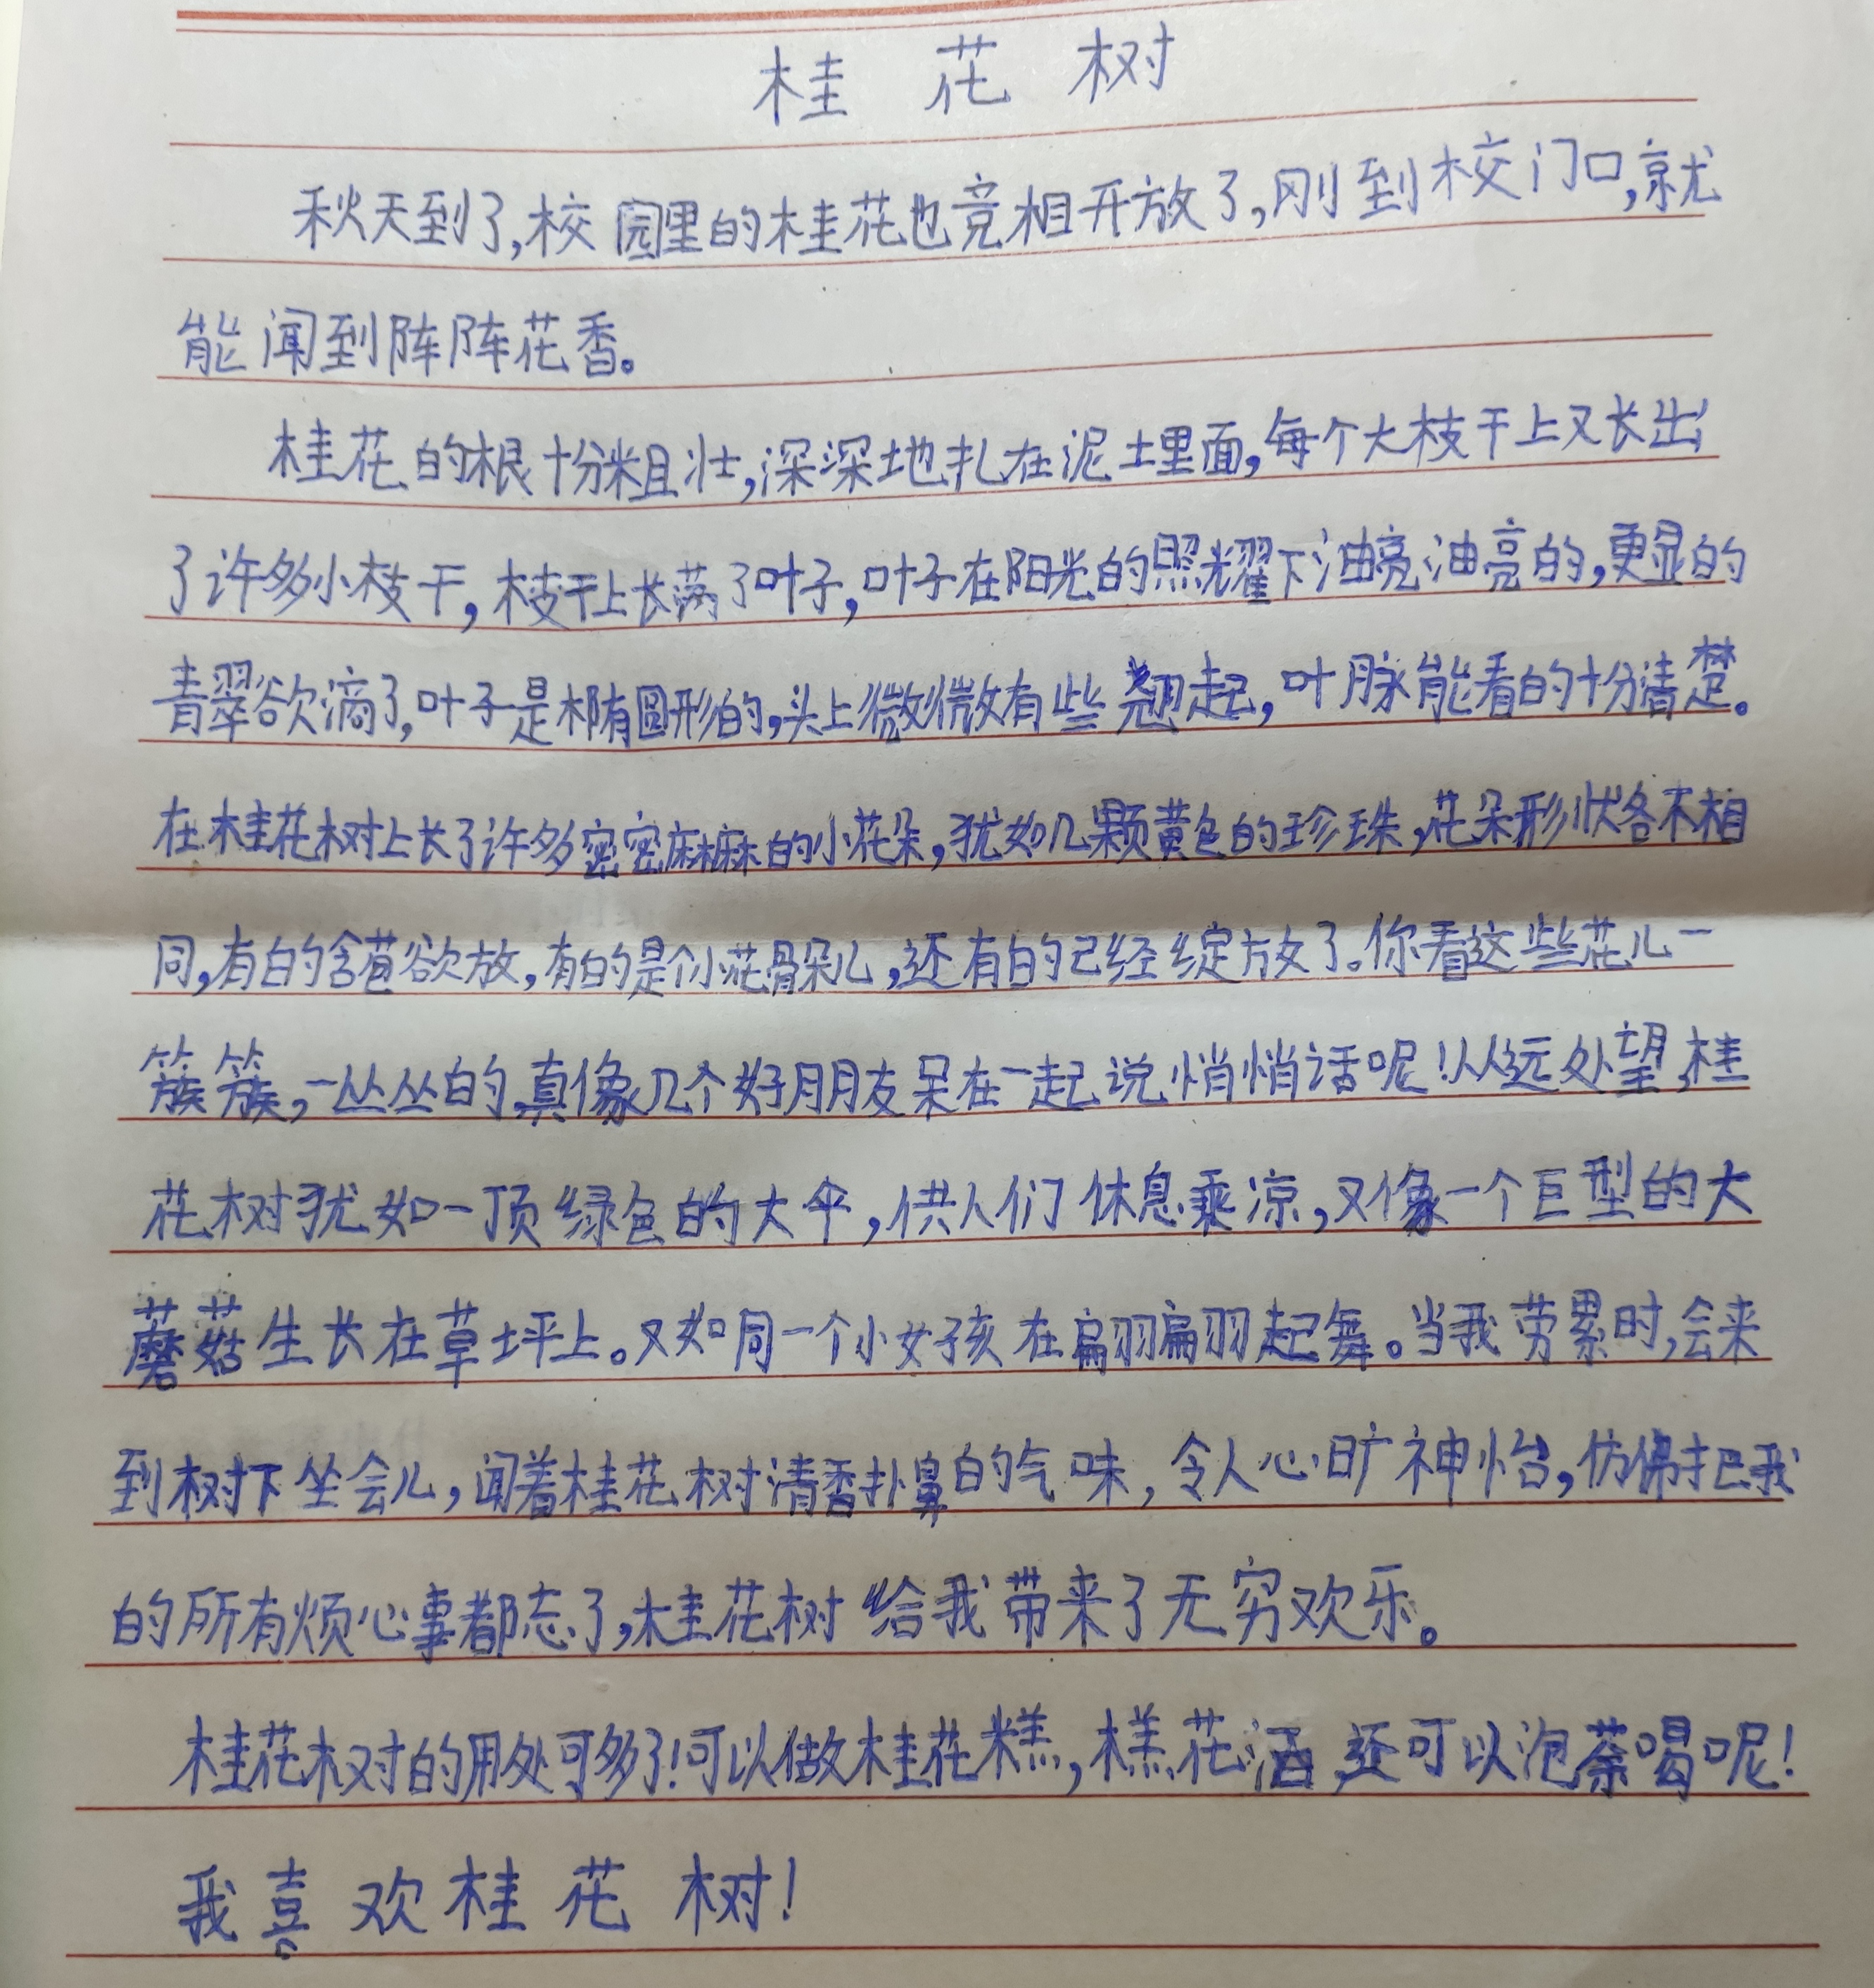 桂花树
秋天到了,校园里的桂花也竞相开放了,刚到校门口,就
能闻到阵阵花香。
桂花的根十份粗壮,深深地扎在泥土里面,每个大枝干上又长出
了许多小枝干,枝干上长满了叶子,叶子在阳光的照耀下油亮油亮的,更显的
青翠欲滴了,叶子是椭圆形的,头上微微有些翘起,叶脉能看的十分清楚。
在桂花树上长了许多密密麻麻的小花朵,犹如几颗黄色的珍珠,花朵形状各不相
同,有的含苞欲放,有的是个小花骨朵儿,还有的已经绽放了。你看这些花儿一
簇簇,一丛丛的,真像几个好朋友呆在一起说悄悄话呢!从远处望,桂
花树犹如一顶绿色的大伞,供人们休息乘凉,又像一个巨型的大
蘑菇生长在草坪上。又如同一个小女孩在翩翩起舞。当我劳累时,会来
到树下坐会儿,闻着桂花树清香扑鼻的气味,令人心旷神怡,仿佛把我
的所有烦心事都忘了,桂花树给我带来了无穷欢乐。
桂花树的用处可多了!可以做桂花糕,糕花酒,还可以泡茶喝呢!
我喜欢桂花树!